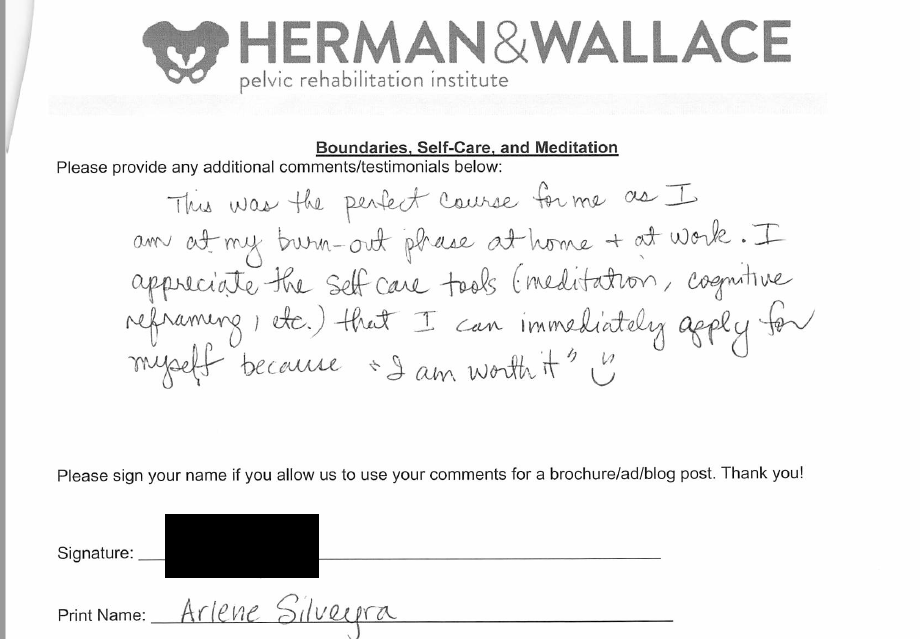 HERMAN&WALLACE
pelvic rehabilitation institute
Boundaries, Self-Care, and Meditation
Please provide any additional comments/testimonials below:
This was the perfect course for me as I
am at my burn-out phase at home + at work. I
appreciate the self care tools (meditation, cognitive
reframing, etc.) that I can immediately apply for
myself because "I am worth it"
Please sign your name if you allow us to use your comments for a brochure/ad/blog post. Thank you!
Signature:
Print Name: Arlene Silveyra